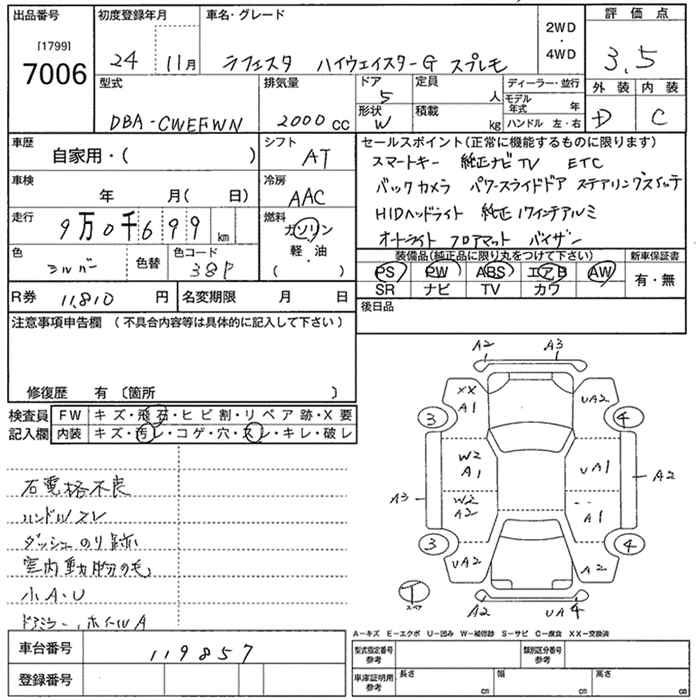 出品番号 初度登録年月 車名・グレード 2WD・4WD 評価点
[1799]
7006 24 11月 ラフェスタ ハイウェイスターG スプレモ 3.5
型式 排気量 ドア 5 定員 人 ディーラー・並行 外装 内装
DBA-CWEFWN 2000cc 形状 W 積載 kg モデル年式 年 ハンドル 左・右 D C
車歴 自家用・( ) シフト AT セールスポイント(正常に機能するものに限ります)
スマートキー 純正ナビTV ETC
車検 年 月( 日) 冷房 AAC バックカメラ パワースライドドア ステアリングスイッチ
走行 9万0千699km 燃料 ガソリン 軽・油 ( ) HIDヘッドライト 純正17インチアルミ
オートライト フロアマット バイザー
色 シルバー 色替 色コード 38P 装備品(純正品に限り丸をつけて下さい) 新車保証書
PS PW ABS エアB AW 有・無
SR ナビ TV カワ
R券 11,810円 名変期限 月 日 後日品
注意事項申告欄 (不具合内容等は具体的に記入して下さい)
修復歴 有 〔箇所 〕
検査員記入欄 FW キズ・飛石・ヒビ割・リペア跡・X要
内装 キズ・汚レ・コゲ・穴・スレ・キレ・破レ
ハンドルスレ
ダッシュのり跡
室内動物の毛
小A・U
ドアミラー、ホイールA
A2 A3
XX A1 UA2
3 4
W2 A1 UA1
A3 A2
W2 A2 A1
3 4
UA2 A2
T スペア A2 UA4
A-キズ E-エクボ U-凹み W-補修跡 S-サビ C-腐食 XX-交換済
車台番号 119857 型式指定番号 参考 類別区分番号 参考
登録番号 車庫証明用 参考 長さ cm 幅 cm 高さ cm